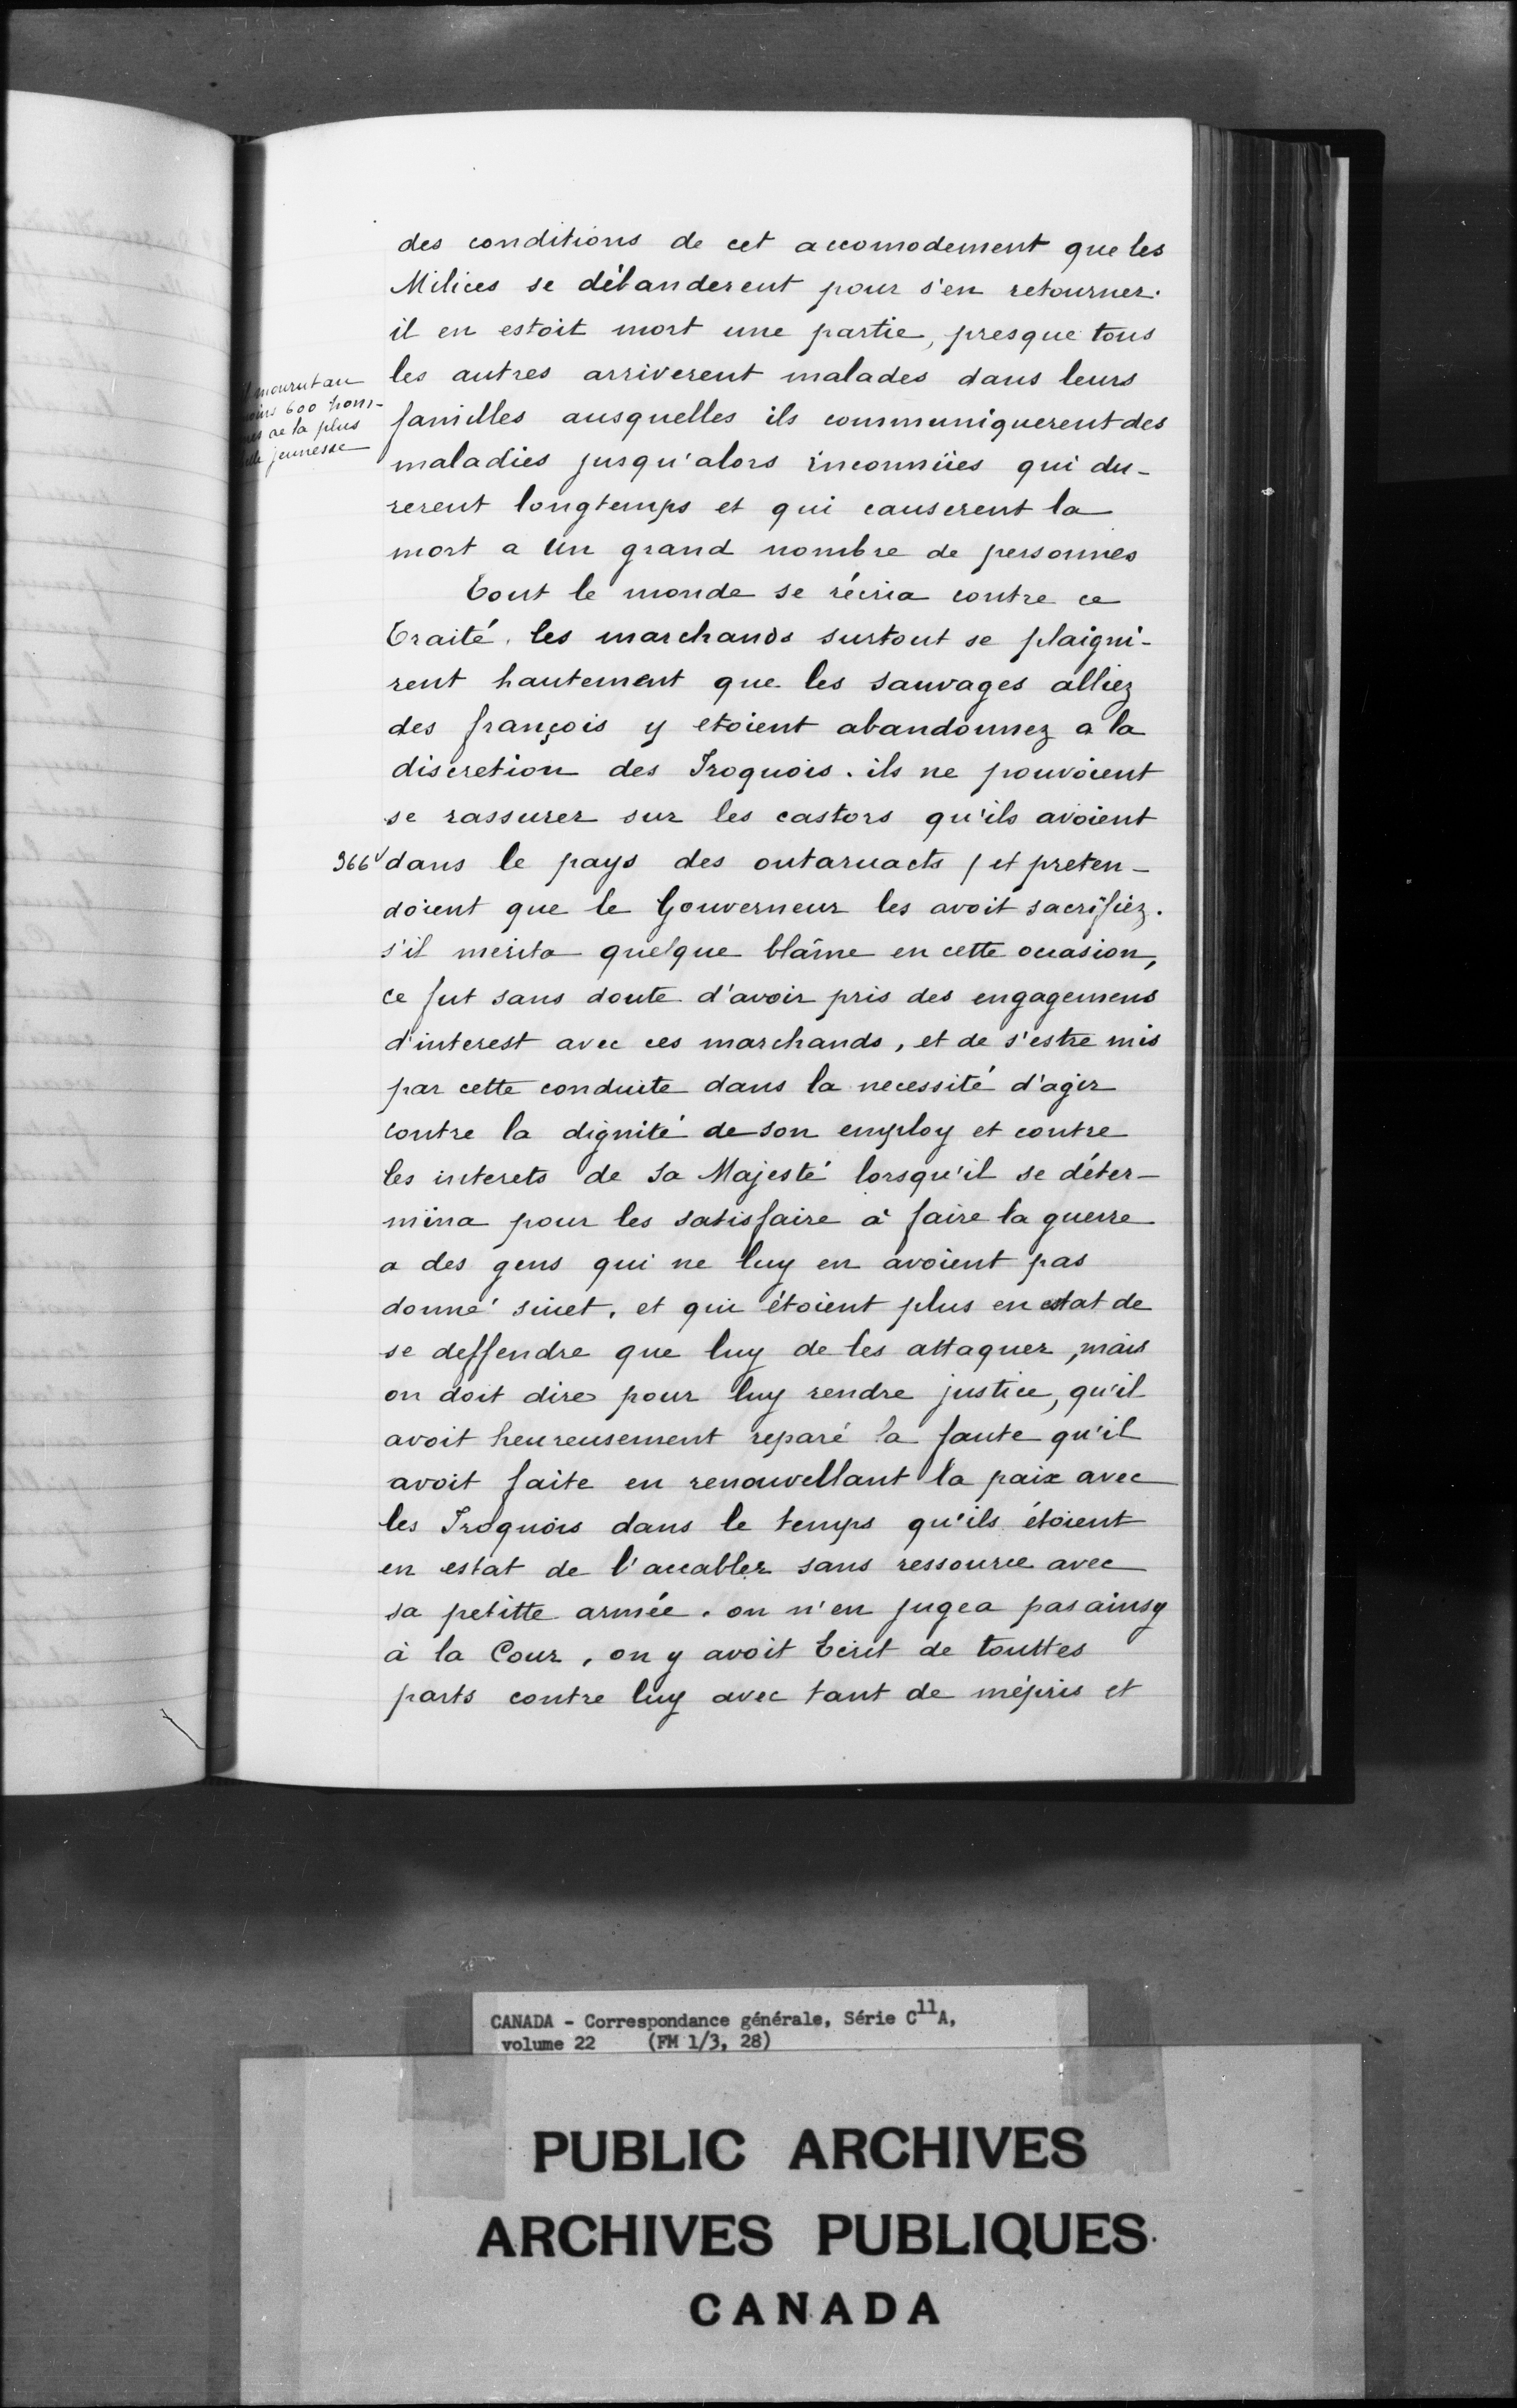 des conditions de cet accomodement que les
Milices se débanderent pour s'en retourner.
il en estoit mort une partie, presque tous
les autres arriverent malades dans leurs
mourut au
600 hom-
de la plus
jeunesse
familles ausquelles ils communiquerent des
maladies jusqu'alors inconnües qui du-
rerent longtemps et qui causerent la
mort a Un grand nombre de personnes
Tout le monde se récria contre ce
Traité. les marchands surtout se plaigni-
rent hautement que les sauvages alliez
des françois y etoient abandonnez a la
discretion des Iroquois. ils ne pouvoient
se rassurer sur les castors qu'ils avoient
366v dans le pays des outaruacts / et preten-
doient que le Gouverneur les avoit sacrifiéz.
s'il merita quelque blâme en cette occasion,
ce fut sans doute d'avoir pris des engagemens
d'interest avec ces marchands, et de s'estre mis
par cette conduite dans la necessité d'agir
contre la dignité de son employ et contre
les interets de Sa Majesté lorsqu'il se déter-
mina pour les satisfaire à faire la guerre
a des gens qui ne luy en avoient pas
donné suiet, et qui étoient plus en estat de
se deffendre que luy de les attaquer, mais
on doit dire pour luy rendre justice, qu'il
avoit heureusement reparé la faute qu'il
avoit faite en renouvellant la paix avec
les Iroquois dans le temps qu'ils étoient
en estat de l'accabler sans ressource avec
sa petitte armée. on n'en jugea pas ainsy
à la Cour, on y avoit Ecrit de touttes
parts contre luy avec tant de mépris et
CANADA - Correspondance générale, Série C11A,
volume 22 (FM 1/3, 28)
PUBLIC ARCHIVES
ARCHIVES PUBLIQUES
CANADA